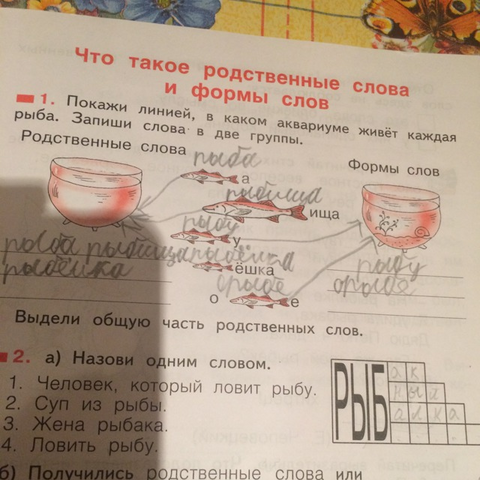 Что такое родственные слова
и формы слов
1. Покажи линией, в каком аквариуме живёт каждая
рыба. Запиши слова в две группы.
Родственные слова
Формы слов
рыба
а
рыбища
ища
рыбу
у
ёшка
о е
рыба рыбища
рыбёшка
рыбу
Выдели общую часть родственных слов.
2. а) Назови одним словом.
1. Человек, который ловит рыбу.
2. Суп из рыбы.
3. Жена рыбака.
4. Ловить рыбу.
РЫБ
ак
ачка
б) Получились родственные слова или